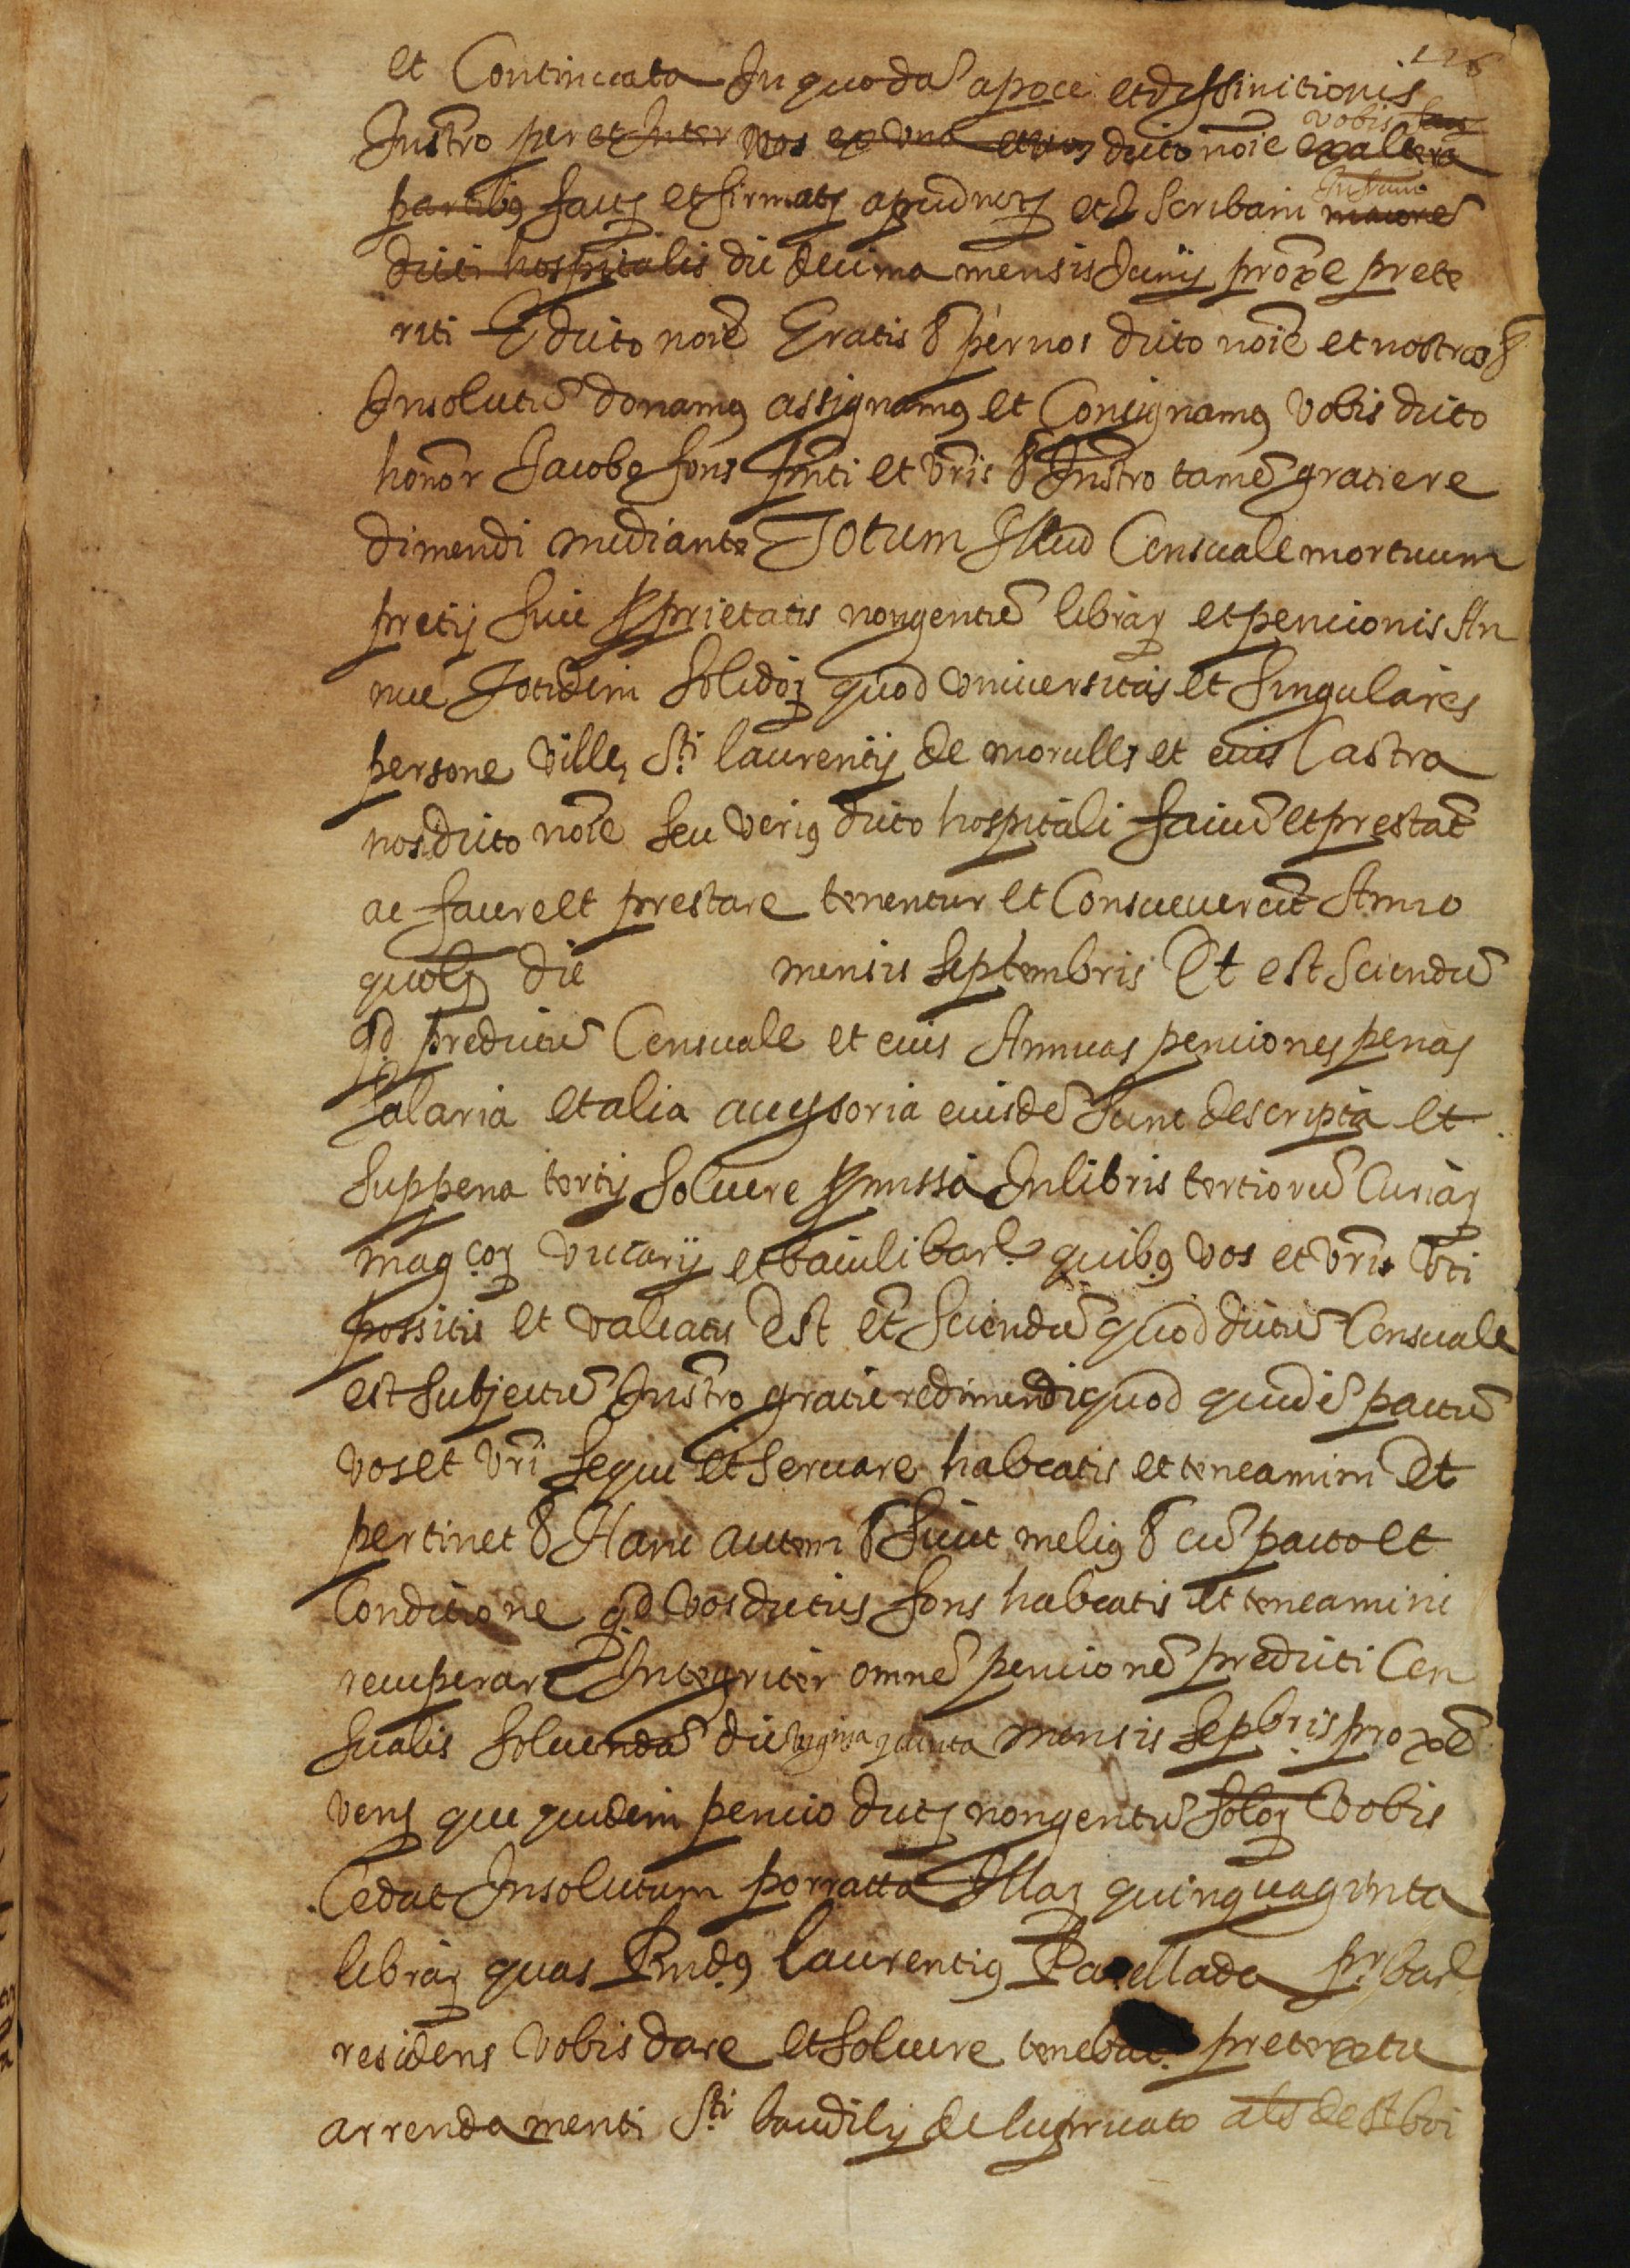 126
et Continuata In quoda apoce et diffinitionis
vobis
Instro per et Inter nos ex una et vos dicto noie ex altera
Infrascrip
partibus factis et firmatis apud nots et scribam maiore
dicti hospitalis die decima mensis Junij proxe prete
riti E dicto noie Gratis & per nos dicto noie et nostros &
Insolutu donamus assignamus et Consignamus vobis dicto
honor Jacobo fons pnti et vris & Instro tame gratie re
dimendi mediante Totum Illud Censuale mortuum
pretij sive proprietatis nongentu librar et pencionis An
nue Totidem solidor quod universitas et singulares
persone ville Sti laurentij de morulls et eius Castra
nos dicto noie seu verius dicto hospitali faciut et prestat
ac facere et prestare tenentur et Consueverut Anno
quolt die mensis septembris Et est sciendu
qd predictu Censuale et eius Annuas penciones penas
salaria et alia accessoria eiusde sunt descripta et
sub pena tertij solvere promissa In libris tertioru Curiar
magcor vicarij et baiuli barne quibus vos et vris Uti
possitis et valeatis Est et Sciendu quod dictu Censuale
est subjectu Instro gratie redimendi quod quide pactu
vos et vri sequi et servare habeatis et teneamini Et
pertinet & Hanc autem & sicut melius & cu pacto et
Conditione qd vos dictus fons habeatis et teneamini
recuperare Integriter omne pencione predicti Cen
sualis solvenda die vigma quinta mensis sepbris proxe
vens que quidem pencio dicts nongentu solor vobis
Cedat Insolutum porratta Illar quinquaginta
librar quas Rndus laurentius Parellada pr bar
residens vobis dare et solvere tenebat pretextu
arrendamenti Sti baudilij de lupricato als de st boi